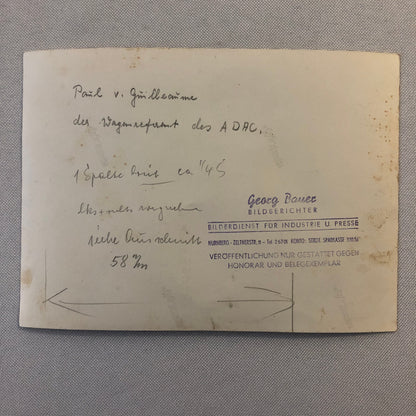 Paul v. Guilleaume
der Wagenreferent des ADAC,
1 Spalte breit ca
siehe Ausschnitt
58 m/m
Georg Bauer
BILDBERICHTER
BILDERDIENST FÜR INDUSTRIE U. PRESSE
NÜRNBERG - ZELTNERSTR. Tel. KONTO: STÄDT. SPARKASSE
VERÖFFENTLICHUNG NUR GESTATTET GEGEN
HONORAR UND BELEGEXEMPLAR